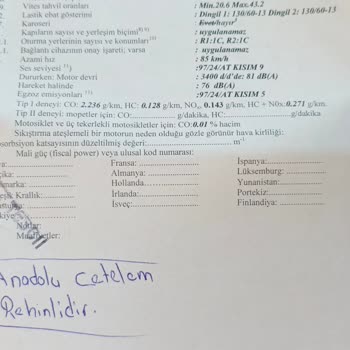 Vites tahvil oranları : Min.20.6 Max.43.2
2. Lastik ebat gösterimi : Dingil 1: 130/60-13 Dingil 2: 130/60-13
Karoseri : Evet/hayır²
Kapıların sayısı ve yerleşim biçimi⁸⁾⁹⁾ : uygulanamaz;
Oturma yerlerinin sayısı ve konumları¹⁰⁾ : R1:1C, R2:1C
1. Bağlantı cihazının onay işareti; varsa : uygulanamaz;
Azami hız : 85 km/h
Ses seviyesi ¹¹⁾ :97/24/AT KISIM 9
Dururken: Motor devri : 3400 d/d'de: 81 dB(A)
Hareket halinde : 76 dB(A)
Egzoz emisyonları ¹¹⁾ :97/24/AT KISIM 5
Tip I deneyi: CO: 2.236 g/km, HC: 0.128 g/km, NOx, 0.143 g/km, HC + N0x:0.271 g/km.
Tip II deneyi: mopetler için: CO: g/dakika, HC: g/dakika
Motosiklet ve üç tekerlekli motosikletler için: CO:0.01 % hacim
Sıkıştırma ateşlemeli bir motorun neden olduğu gözle görünür hava kirliliği:
sorbsiyon katsayısının düzeltilmiş değeri: m⁻¹
Mali güç (fiscal power) veya ulusal kod numarası:
Fransa: İspanya:
Almanya : Lüksemburg:
Hollanda Yunanistan:
Krallık: İrlanda: Portekiz:
İsveç: Finlandiya:
Notlar:
Muafiyetler:
Anadolu Cetelem
Rehinlidir.